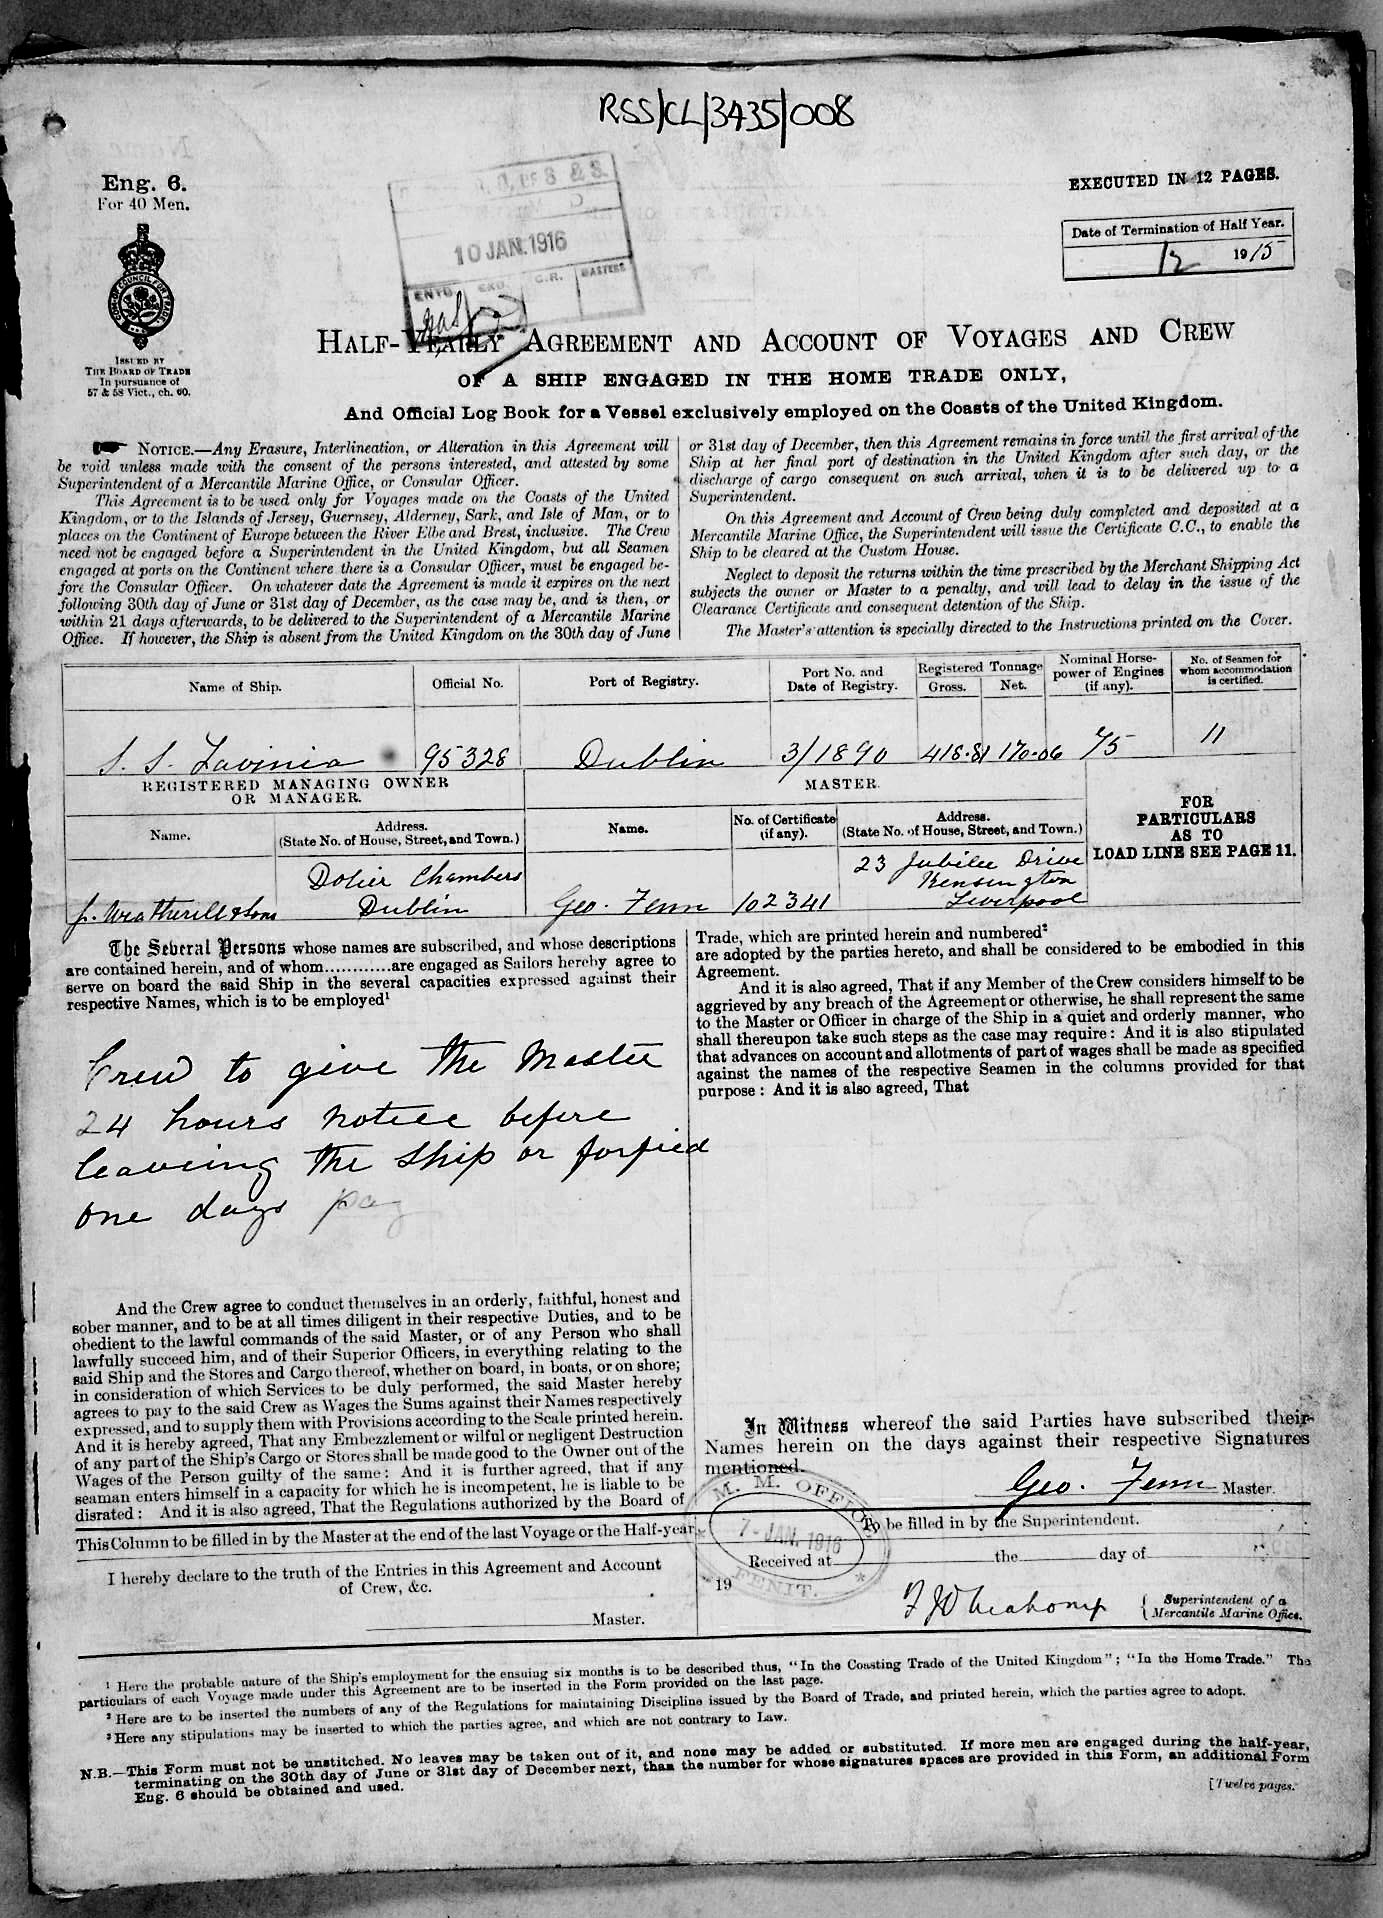 RSS/CL/3435/008
Eng. 6.
For 40 Men.
EXECUTED IN 12 PAGES.
10 JAN. 1916
ENTD. EXD. C.R. MASTERS
Date of Termination of Half Year.
12 1915
ISSUED BY
THE BOARD OF TRADE
In pursuance of
57 & 58 Vict., ch. 60.
HALF-YEARLY AGREEMENT AND ACCOUNT OF VOYAGES AND CREW
OF A SHIP ENGAGED IN THE HOME TRADE ONLY,
And Official Log Book for a Vessel exclusively employed on the Coasts of the United Kingdom.
NOTICE.—Any Erasure, Interlineation, or Alteration in this Agreement will
be void unless made with the consent of the persons interested, and attested by some
Superintendent of a Mercantile Marine Office, or Consular Officer.
This Agreement is to be used only for Voyages made on the Coasts of the United
Kingdom, or to the Islands of Jersey, Guernsey, Alderney, Sark, and Isle of Man, or to
places on the Continent of Europe between the River Elbe and Brest, inclusive. The Crew
need not be engaged before a Superintendent in the United Kingdom, but all Seamen
engaged at ports on the Continent where there is a Consular Officer, must be engaged be-
fore the Consular Officer. On whatever date the Agreement is made it expires on the next
following 30th day of June or 31st day of December, as the case may be, and is then, or
within 21 days afterwards, to be delivered to the Superintendent of a Mercantile Marine
Office. If however, the Ship is absent from the United Kingdom on the 30th day of June
or 31st day of December, then this Agreement remains in force until the first arrival of the
Ship at her final port of destination in the United Kingdom after such day, or the
discharge of cargo consequent on such arrival, when it is to be delivered up to a
Superintendent.
On this Agreement and Account of Crew being duly completed and deposited at a
Mercantile Marine Office, the Superintendent will issue the Certificate C.C., to enable the
Ship to be cleared at the Custom House.
Neglect to deposit the returns within the time prescribed by the Merchant Shipping Act
subjects the owner or Master to a penalty, and will lead to delay in the issue of the
Clearance Certificate and consequent detention of the Ship.
The Master's attention is specially directed to the Instructions printed on the Cover.
Name of Ship. Official No. Port of Registry. Port No. and Date of Registry. Registered Tonnage Gross. Net. Nominal Horse-power of Engines (if any). No. of Seamen for whom accommodation is certified.
S. S. Lavinia 95328 Dublin 3/1890 418.81 170.06 75 11
REGISTERED MANAGING OWNER
OR MANAGER.
MASTER.
Name. Address. (State No. of House, Street, and Town.) Name. No. of Certificate (if any). Address. (State No. of House, Street, and Town.)
FOR
PARTICULARS
AS TO
LOAD LINE SEE PAGE 11.
J. Weatherill & Sons
Dolier Chambers
Dublin
Geo. Fenn 102341
23 Jubilee Drive
Kensington
Liverpool
The Several Persons whose names are subscribed, and whose descriptions
are contained herein, and of whom............are engaged as Sailors hereby agree to
serve on board the said Ship in the several capacities expressed against their
respective Names, which is to be employed¹
Crew to give the Master
24 hours notice before
leaveing the Ship or forfied
one days pay
And the Crew agree to conduct themselves in an orderly, faithful, honest and
sober manner, and to be at all times diligent in their respective Duties, and to be
obedient to the lawful commands of the said Master, or of any Person who shall
lawfully succeed him, and of their Superior Officers, in everything relating to the
said Ship and the Stores and Cargo thereof, whether on board, in boats, or on shore;
in consideration of which Services to be duly performed, the said Master hereby
agrees to pay to the said Crew as Wages the Sums against their Names respectively
expressed, and to supply them with Provisions according to the Scale printed herein.
And it is hereby agreed, That any Embezzlement or wilful or negligent Destruction
of any part of the Ship's Cargo or Stores shall be made good to the Owner out of the
Wages of the Person guilty of the same: And it is further agreed, that if any
seaman enters himself in a capacity for which he is incompetent, he is liable to be
disrated: And it is also agreed, That the Regulations authorized by the Board of
Trade, which are printed herein and numbered²
are adopted by the parties hereto, and shall be considered to be embodied in this
Agreement.
And it is also agreed, That if any Member of the Crew considers himself to be
aggrieved by any breach of the Agreement or otherwise, he shall represent the same
to the Master or Officer in charge of the Ship in a quiet and orderly manner, who
shall thereupon take such steps as the case may require: And it is also stipulated
that advances on account and allotments of part of wages shall be made as specified
against the names of the respective Seamen in the columns provided for that
purpose: And it is also agreed, That
In Witness whereof the said Parties have subscribed their
Names herein on the days against their respective Signatures
mentioned.
Geo. Fenn Master.
This Column to be filled in by the Master at the end of the last Voyage or the Half-year
I hereby declare to the truth of the Entries in this Agreement and Account
of Crew, &c.
Master.
M. M. OFFICE
7 - JAN. 1916
FENIT.
To be filled in by the Superintendent.
Received at the day of
19
Superintendent of a
Mercantile Marine Office.
¹ Here the probable nature of the Ship's employment for the ensuing six months is to be described thus, "In the Coasting Trade of the United Kingdom"; "In the Home Trade." The
particulars of each Voyage made under this Agreement are to be inserted in the Form provided on the last page.
² Here are to be inserted the numbers of any of the Regulations for maintaining Discipline issued by the Board of Trade, and printed herein, which the parties agree to adopt.
³ Here any stipulations may be inserted to which the parties agree, and which are not contrary to Law.
N.B.—This Form must not be unstitched. No leaves may be taken out of it, and none may be added or substituted. If more men are engaged during the half-year,
terminating on the 30th day of June or 31st day of December next, than the number for whose signatures spaces are provided in this Form, an additional Form
Eng. 6 should be obtained and used.
[Twelve pages.